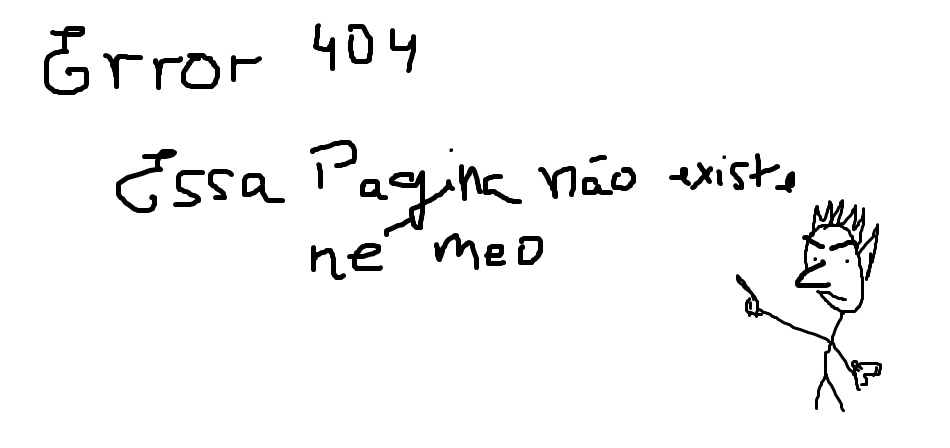 Error 404
Essa Pagina não existe
ne meo